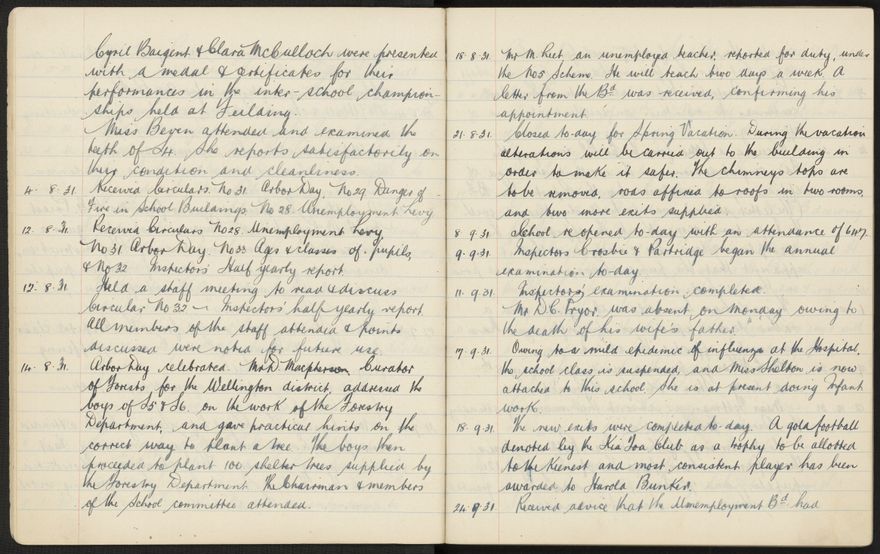 Cyril Bargent & Clara McCulloch were presented
with a medal & certificates for their
performances in the inter-school champion-
ships held at Feilding.
Miss Beven attended and examined the
teeth of S4. She reports satisfactorily on
their condition and cleanliness.
4. 8. 31 Received Circulars. No 31 Arbor Day, No 29 Danger of
Fire in School Buildings No 28 Unemployment Levy
12. 8. 31. Received Circulars No 28 Unemployment Levy
No 31 Arbor Day. No 33 Ages & classes of pupils,
& No 32 Inspectors' Half yearly report
12. 8. 31 Held a staff meeting to read & discuss
Circular No 32 — Inspectors' half yearly report.
All members of the staff attended & points
discussed were noted for future use.
14. 8. 31. Arbor Day celebrated. Mr Macpherson Curator
of Forests for the Wellington district, addressed the
boys of S5 & S6. on the work of the Forestry
Department, and gave practical hints on the
correct way to plant a tree. The boys then
proceeded to plant 100 shelter trees supplied by
the Forestry Department. The Chairman & members
of the School committee attended.
18. 8. 31. Mr M. an unemployed teacher, reported for duty, under
the No 5 Scheme. He will teach two days a week. A
letter from the Bd was received, confirming his
appointment.
21. 8. 31. Closed to-day for Spring Vacation. During the vacation
alterations will be carried out to the building in
order to make it safer. The chimneys tops are
to be removed, affixed to roofs in two rooms,
and two more exits supplied.
8 9. 31. School re opened to-day with an attendance of 647.
9. 9. 31. Inspectors Crosbie & Partridge began the annual
examination to-day.
11. 9. 31. Inspectors' examination completed.
Mr D.C. Pryor was absent on Monday owing to
the death of his wife's father.
17. 9. 31. Owing to a mild epidemic of influenza at the Hospital,
the school class is suspended, and Miss Shelton is now
attached to this school. She is at present doing Infant
work.
18. 9. 31. The new exits were completed to-day. A gold football
donated by the Kia Toa Club as a trophy to be allotted
to the keenest and most consistent player has been
awarded to Harold Bunker.
24. 9. 31 Received advice that the Unemployment Bd had